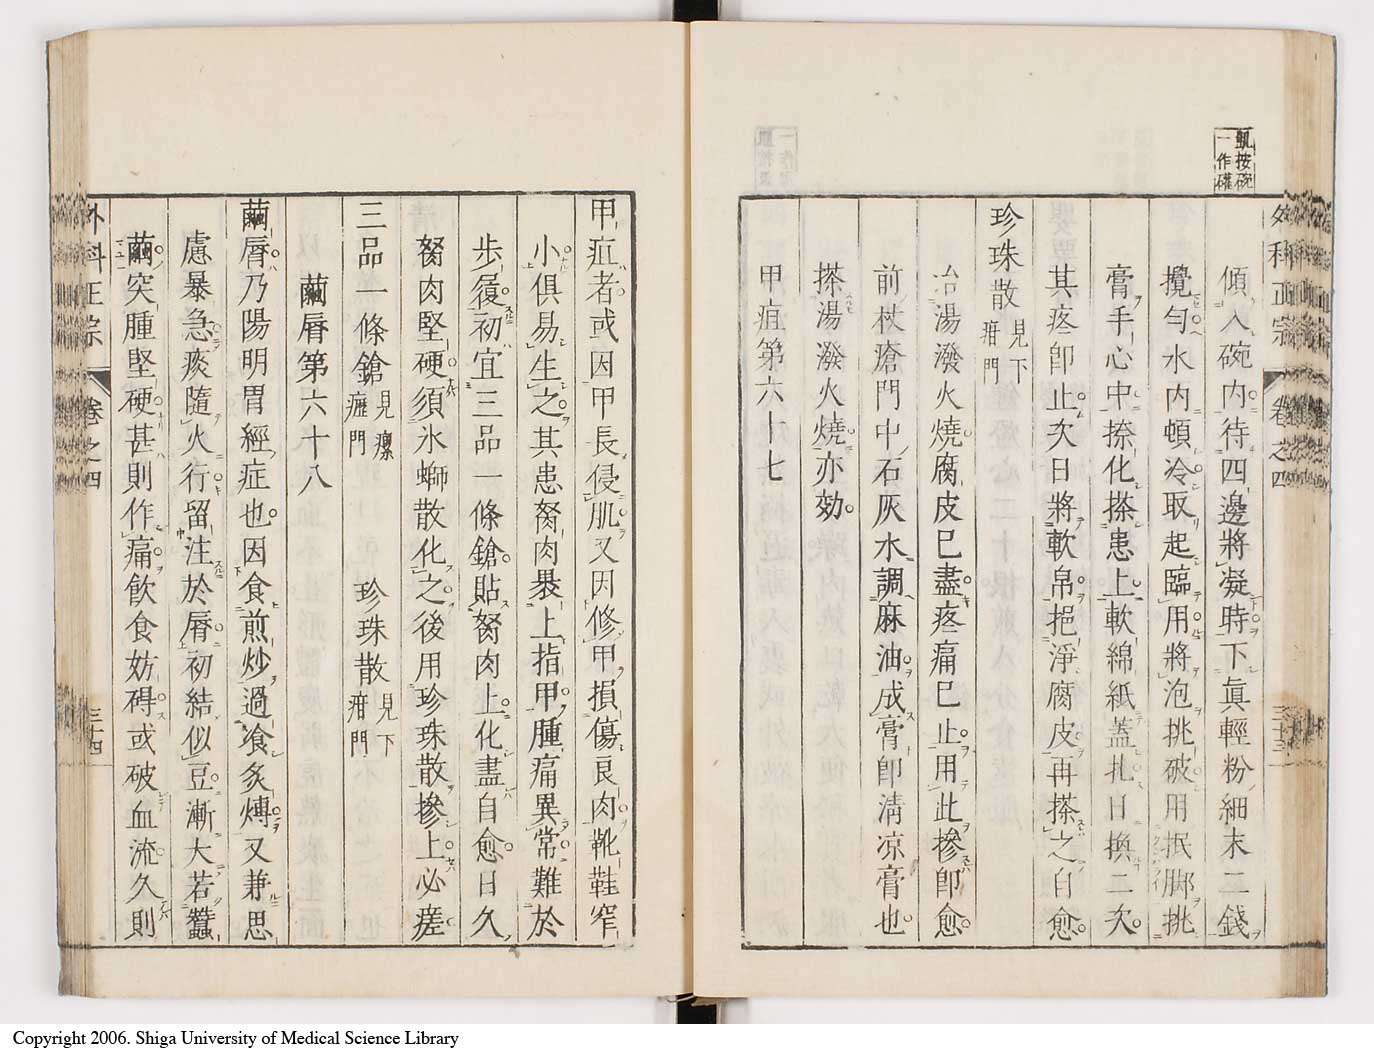 一作礶
外科正宗 卷之四 三十三
傾入碗內待四邊將凝時下眞輕粉細末二錢
攪勻水內頓冷取起臨用將泡挑破用抿脚挑
膏手心中捺化搽患上軟綿紙蓋扎日換二次
其疼卽止次日將軟帛挹淨腐皮再搽之自愈
珍珠散見下疳門
冶湯潑火燒腐皮已盡疼痛已止用此摻卽愈
前杖瘡門中石灰水調麻油成膏卽淸凉膏也
搽湯潑火燒亦効
甲疽第六十七
甲疽者或因甲長侵肌又因修甲損傷良肉靴鞋窄
小俱易生之其患胬肉裹上指甲腫痛異常難於
步履初宜三品一條鎗貼胬肉上化盡自愈日久
胬肉堅硬須氷螄散化之後用珍珠散摻上必瘥
三品一條鎗見瘰癧門 珍珠散見下疳門
繭脣第六十八
繭脣乃陽明胃經症也因食煎炒過飡炙煿又兼思
慮暴急痰隨火行留注於脣初結似豆漸大若蠶
繭突腫堅硬甚則作痛飮食妨碍或破血流久則
外科正宗 卷之四 三十四
Copyright 2006. Shiga University of Medical Science Library